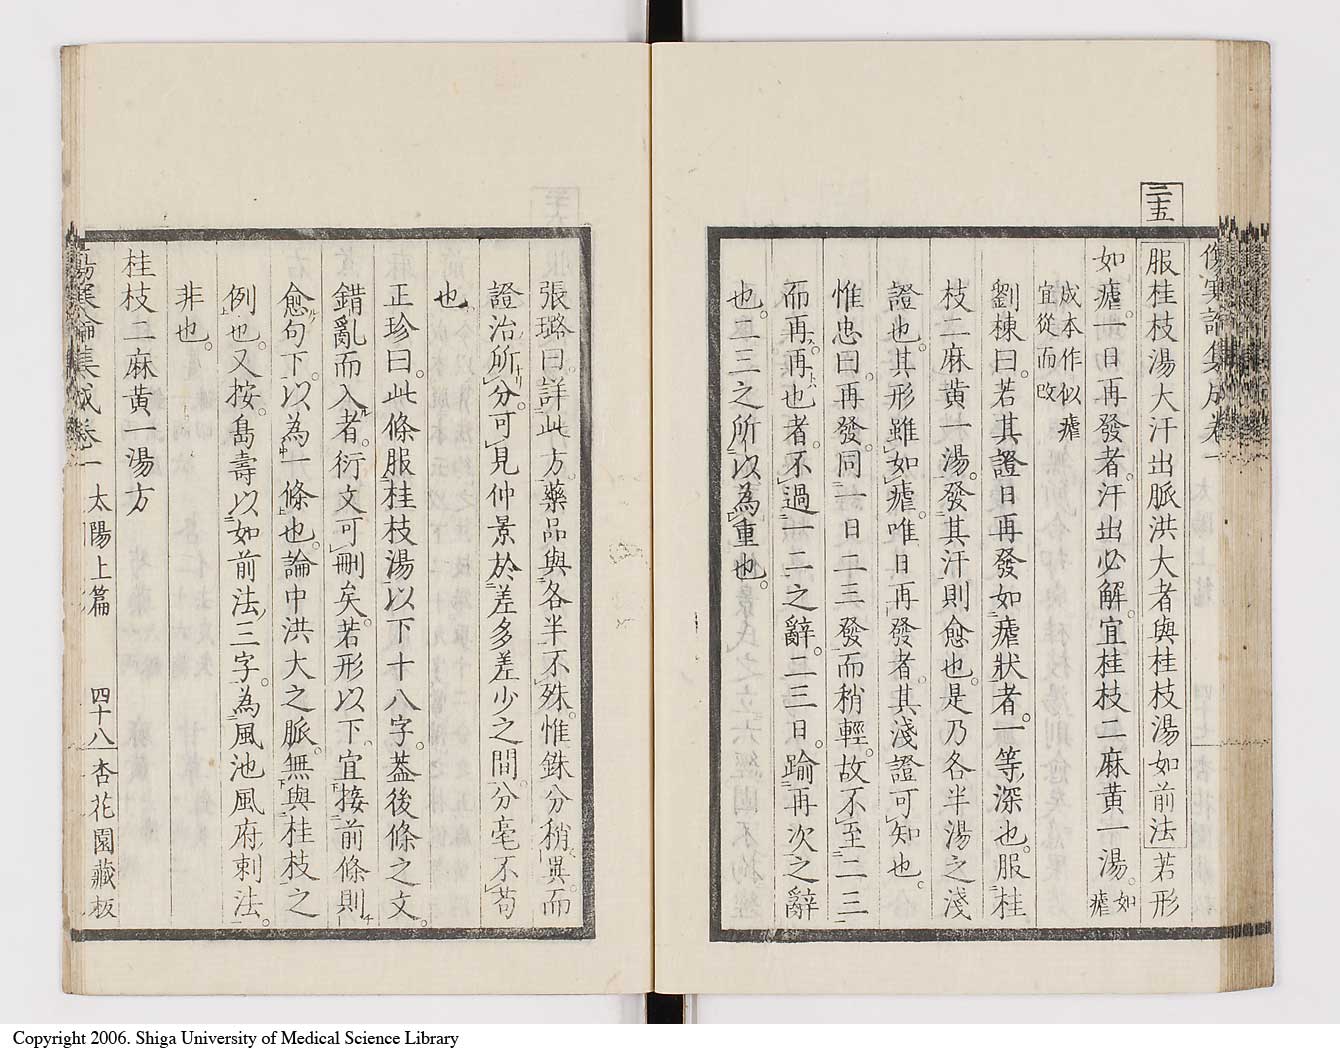 二五
服桂枝湯大汗出脈洪大者與桂枝湯如前法若形
如瘧一日再發者汗出必解宜桂枝二麻黄一湯 如瘧
成本作似瘧
宜從而改
劉棟曰若其證日再發如瘧狀者一等深也服桂
枝二麻黄一湯發其汗則愈也是乃各半湯之淺
證也其形雖如瘧唯日再發者其淺證可知也
惟忠曰再發同一日二三發而稍輕故不至二三
而再再也者不過一二之辭二三日踰再次之辭
也二三之所以為重也
張璐曰詳此方藥品與各半不殊惟銖分稍異而
證治所分可見仲景於差多差少之間分毫不苟
也
正珍曰此條服桂枝湯以下十八字葢後條之文
錯亂而入者衍文可刪矣若形以下宜接前條則
愈句下以為一條也論中洪大之脈無與桂枝之
例也又按島壽以如前法三字為風池風府刺法
非也
桂枝二麻黄一湯方
傷寒論集成卷一 太陽上篇 四十八 杏花園藏板
Copyright 2006. Shiga University of Medical Science Library